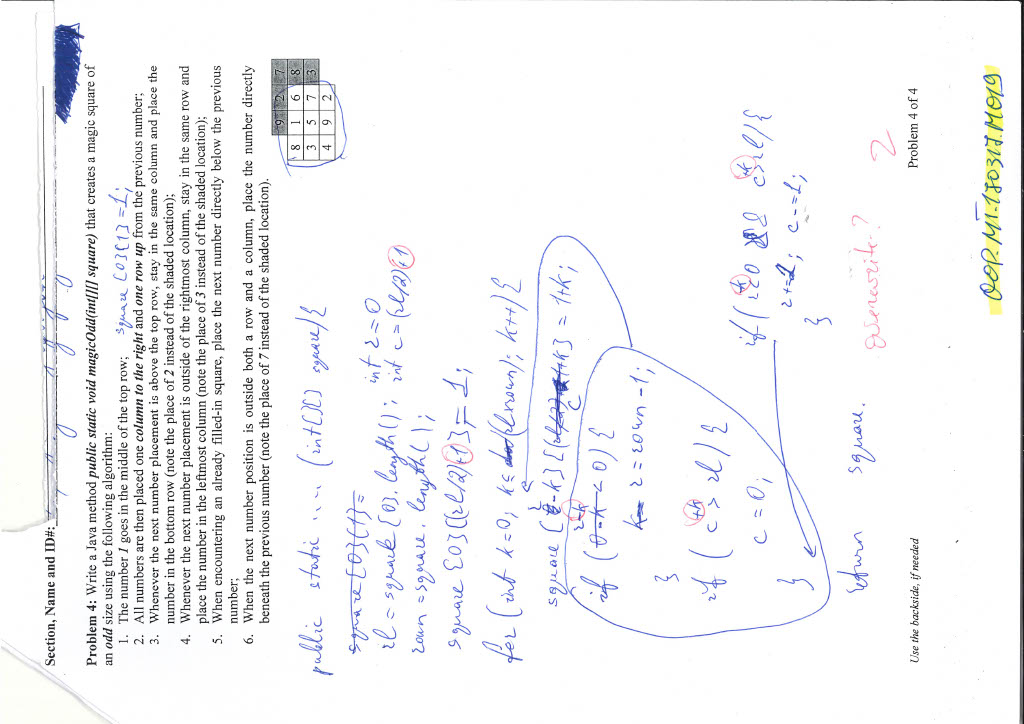 Section, Name and ID#:
Problem 4: Write a Java method public static void magicOdd(int[][] square) that creates a magic square of
an odd size using the following algorithm:
1. The number 1 goes in the middle of the top row; square [0][1] = 1;
2. All numbers are then placed one column to the right and one row up from the previous number;
3. Whenever the next number placement is above the top row, stay in the same column and place the
number in the bottom row (note the place of 2 instead of the shaded location);
4. Whenever the next number placement is outside of the rightmost column, stay in the same row and
place the number in the leftmost column (note the place of 3 instead of the shaded location);
5. When encountering an already filled-in square, place the next number directly below the previous
number;
6. When the next number position is outside both a row and a column, place the number directly
beneath the previous number (note the place of 7 instead of the shaded location).
9 2 7
8 1 6 8
3 5 7 3
4 9 2
public static .... (int[][] square){
square [0][1] =
int r = 0
rl = square [0].length(); int c = (rl/2)+1
rown = square.length();
square [0][(rl/2)+1] = 1;
for (int k=0; k≤ (rl×rown); k++) {
square [r-k] [c+k] = 1+k;
r-k
if (0-k < 0) {
k= r = rown -1;
}
if (c+k > rl) {
c = 0;
}
if (r-k<0 && c+k>rl) {
r+=2; c-=1;
}
return square.
overwrite?
2
Use the backside, if needed
Problem 4 of 4
OOP.MT.170317.M019